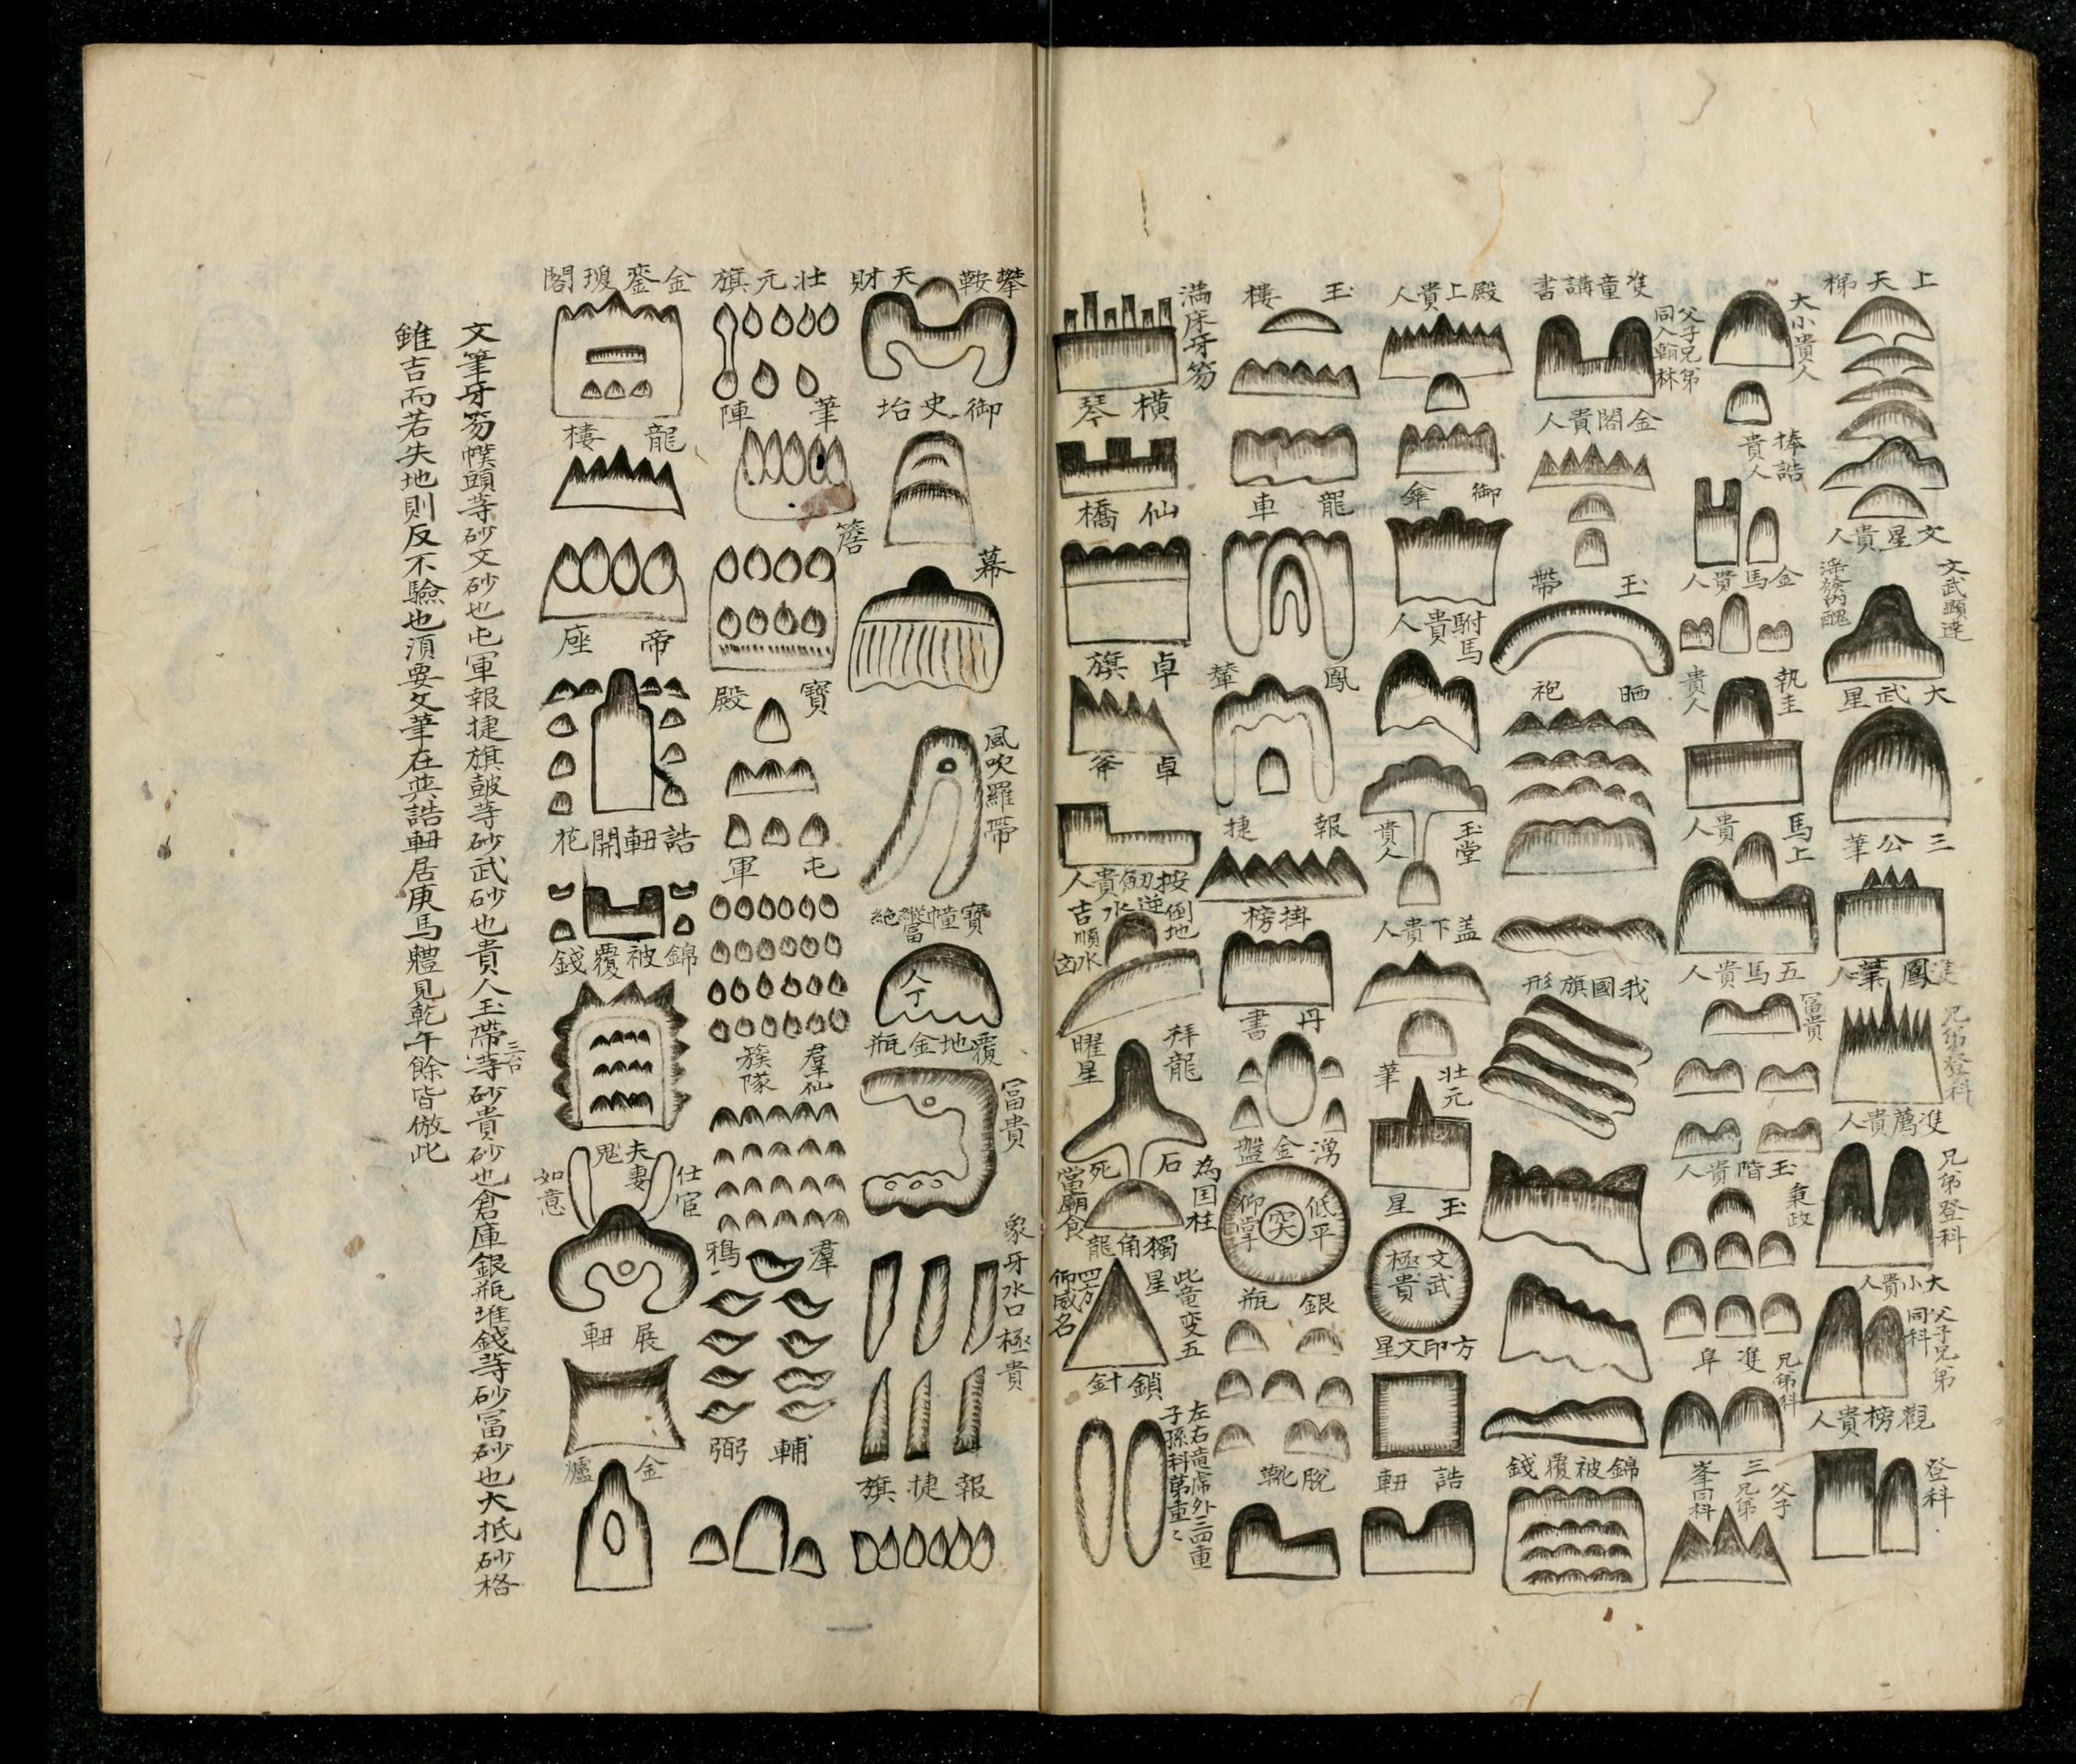 上天梯
文星貴人
文武顯達
大武星
三公華
兄弟登科
雙薦貴人
兄弟登科
大小貴人
父子兄弟
同科
觀榜貴人
登科
大小貴人
捧誥
貴人
金馬貴人
執圭
貴人
馬上
貴人
五馬貴人
富貴
玉階貴人
秉政
雙阜
兄弟科
三峯
父子
兄弟
同科
雙童講書
父子兄弟
同入翰林
金閣貴人
玉帶
晒袍
我國旗形
錦被覆錢
殿上貴人
御傘
駙馬
貴人
玉堂
貴人
盖下貴人
壯元
筆
玉星
文武
極貴
方印文星
誥軸
玉樓
龍車
鳳輦
報捷
掛榜
丹書
湧金盤
低平
突
仰掌
銀瓶
脫靴
滿床牙笏
橫琴
仙橋
卓旗
卓斧
按劒貴人
倒地
逆水
吉順
水凶
拜龍
曜星
石
死
為国柱
當廟食
獨角龍
星
此竜变五
四方
仰威名
鎖針
左右竜虎外三四重
子孫科第重〻
攀鞍
天財
御史坮
幕
簷
風吹羅帶
寶幢
富
絕
人丁
覆地金瓶
富貴
象牙水口極貴
報捷旗
壯元旗
筆陣
寶殿
屯軍
羣仙
簇隊
羣鴉
輔弼
金鑾瓊閣
龍樓
帝座
誥軸開花
錦被覆錢
夫妻
仕宦
如意
展軸
金爐
文筆牙笏幞頭等砂文砂也屯軍報捷旗鼓等砂武砂也貴人玉帶三台等砂貴砂也倉庫銀瓶堆錢等砂富砂也大抵砂格
雖吉而若失地則反不驗也須要文筆在巽誥軸居庚馬軆見乾午餘皆倣此